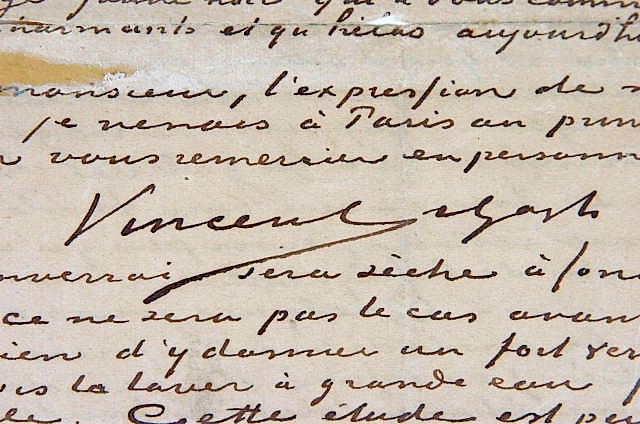 jaune qui vous comm
harmants et qu'hélas aujourd'hu
monsieur, l'expression de
je venais à Paris au prin
vous remercier en personn
Vincent v Gogh
nverrai sera sèche à fon
ce ne sera pas le cas avan
ien d'y donner un fort ver
is la laver à grande eau p
le. Cette étude est pe